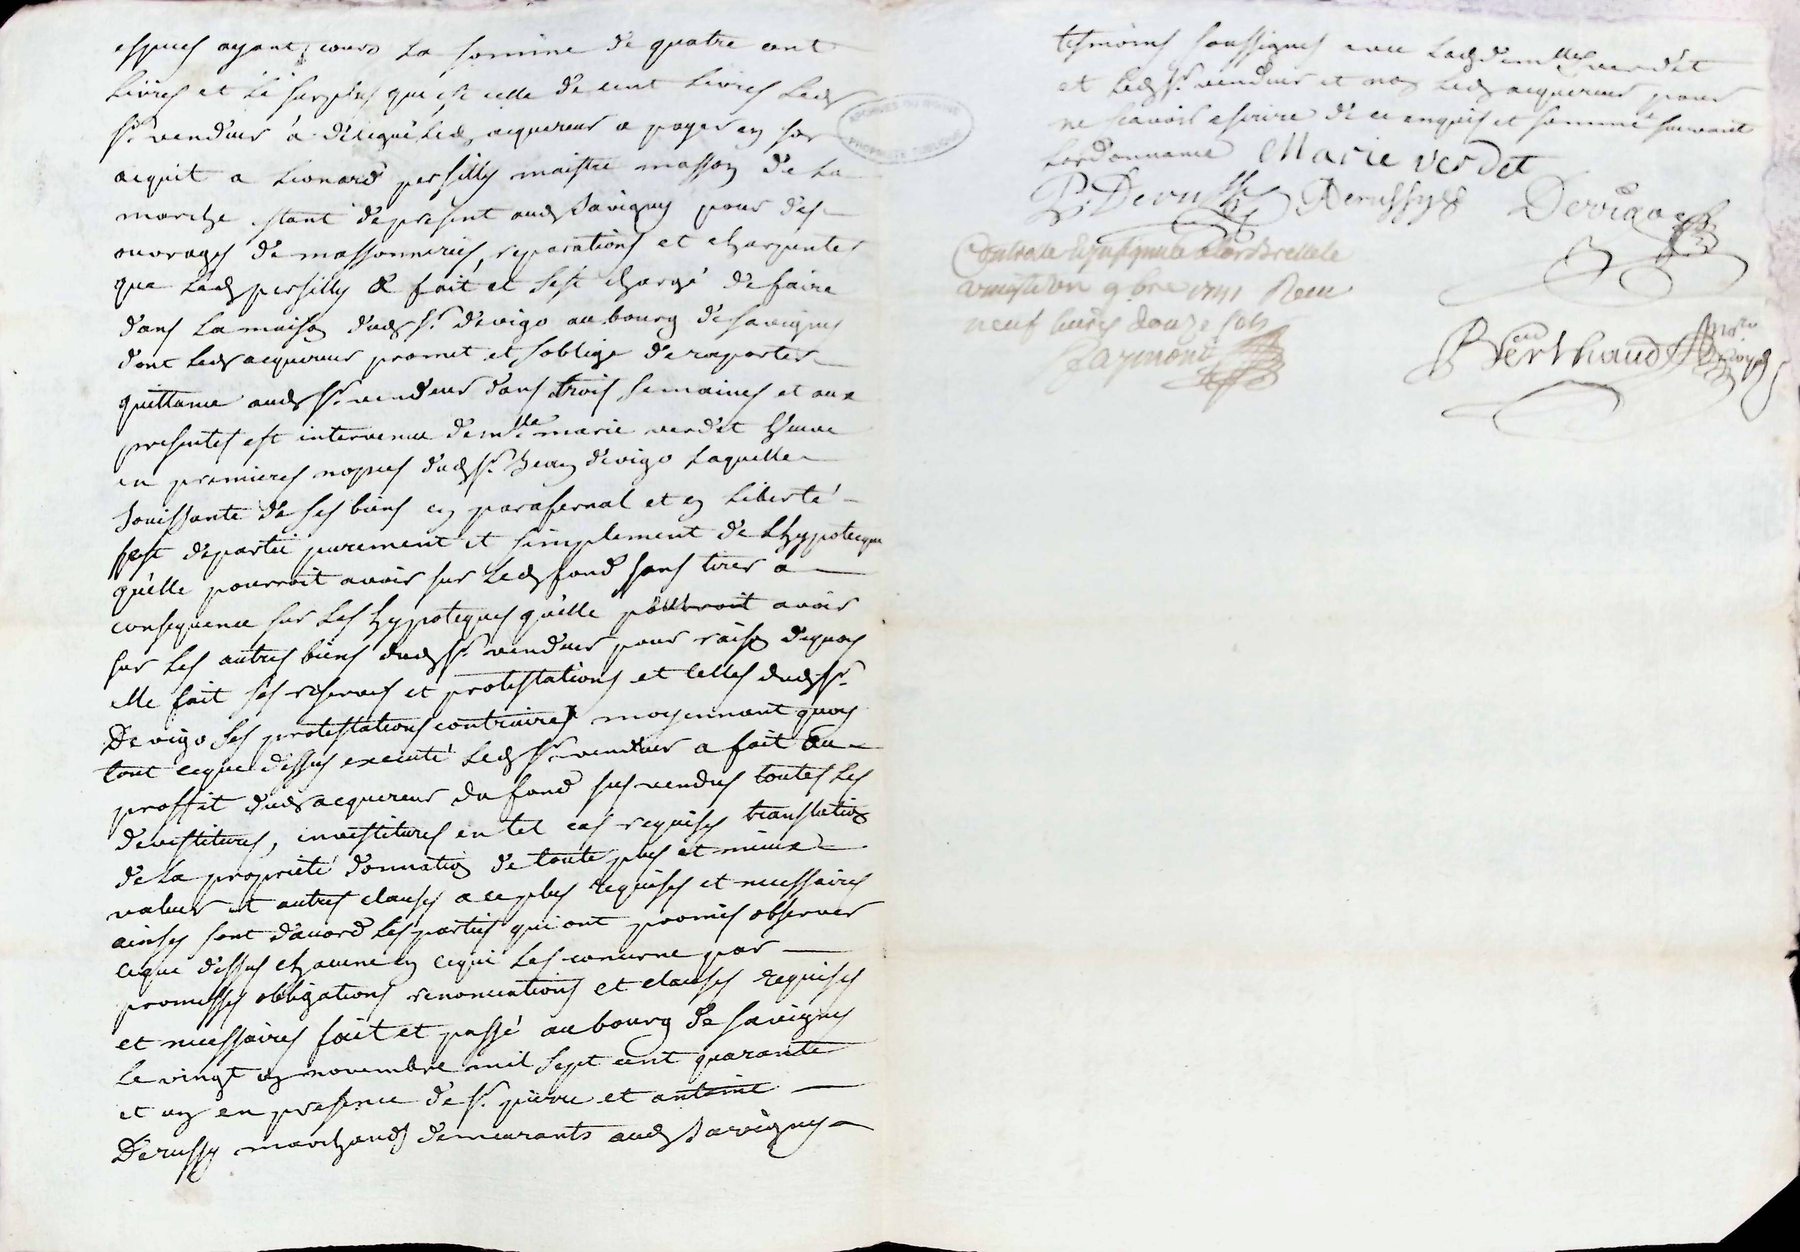 especes ayant cours la somme de quatre cent
livres et le surplus qui est celle de cent livres led
Sr. vendeur à delegué led acquereur a payer en son
acquit a Leonard persilly maistre masson de la
marche estant depresent aud Savigny pour des
ouvrages de massonneries, reparations et charpentes
que led persilly a fait et sest chargé de faire
dans la maison dud Sr. devigo au bourg de savigny
dont led acquereur promet et soblige de raporter
quittance aud Sr. vendeur dans trois semaines et aux
presentes est intervenue demlle marie verdet veuve
en premieres nopces dud Sr. Jean devigo laquelle
Jouissante de ses biens en parafernal et en liberté
sest departie purement et simplement de lhypoteque
quelle pourroit avoir sur led fond sans tirer a
consequence sur les hypoteques quelle pourroit avoir
sur les autres biens dud Sr. vendeur pour raison dequoy
elle fait ses reserves et protestations et celles dud Sr.
Devigo ses protestations contraires moyennant quoy
tout ceque dessus executé led Sr. vendeur a fait au
proffit dud acquereur du fond sus vendus toutes les
devestitures, investitures en tel cas requises translation
de la propriété donnation de toute plus et mieux
valeur et autres clauses a ce plus requises et necessaires
ainsy sont daccord les parties qui ont promis observer
ceque dessus chacune en cequi les concerne par
promesses obligations renonciations et clauses requises
et necessaires fait et passé au bourg de savigny
le vingt un novembre mil sept cent quarante
et un en presence de Sr. pierre et antoine
Derussy marchands demeurants aud Savigny
tesmoins soussignes avec lad demlle verdet
et led Sr. vendeur et non led acquereur pour
ne scavoir escrire de ce enquis et sommé suivant
lordonnance Marie verdet
P. Derussy Derussy Devigo
Controlé
vingt un 9bre 1741 Reçu
neuf livres douze sols
Raymond
Berthaud No.re Royal